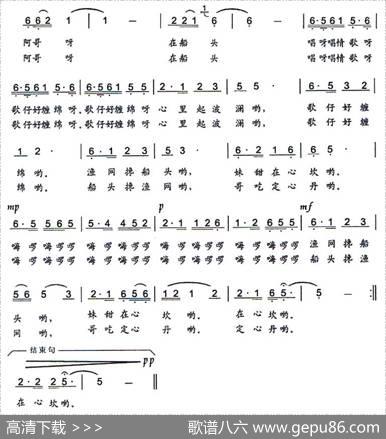 6 6 2 1 — | 2 2 1 6 6 — | 6·5 6 1 5·6
阿哥 呀 在船 头 唱呀唱情 歌 呀
阿哥 呀 在船 头 唱呀唱情 歌 呀
6·5 6 1 5·6 | 6·5 6 1 5 5 | 2·1 2 3 | 5 5· | 6·1 2 3
歌仔好缠 绵 呀，歌仔好缠绵呀 心 里起波 澜哟， 歌 仔好缠
歌仔好缠 绵 呀，歌仔好缠绵呀 心 里起波 澜哟， 歌 仔好缠
1 2· | 6·1 2 3 | 1 2· | 6·1 6 5 | 1 2·
绵 哟， 渔 网拂船 头哟， 妹 甜在心 坎 哟。
绵 哟， 船 头拂渔 网哟， 哥 吃定心 丹 哟。
mp p mf
6·5 5 6 5 | 5·4 4 5 2 | 2·1 1 2 6 | 1·2 6 5 5 | 6·1 2 3
嗨 啰嗨啰啰 嗨 啰嗨啰啰 嗨 啰嗨啰啰 嗨 啰嗨啰啰 渔 网拂船
嗨 啰嗨啰啰 嗨 啰嗨啰啰 嗨 啰嗨啰啰 嗨 啰嗨啰啰 船 头拂渔
5 6 5 3 | 2·1 6 5 6 | 1 2 1 2 | 2·1 6 5· | 5 — :||
头 哟， 妹 甜在心 坎 哟。 在 心坎 哟。
网 哟， 哥 吃定心 丹 哟， 定 心丹 哟。
结束句 pp
2·2 2 5· | 5 — ||
在 心 坎哟。
高清下载 >>> 歌谱八六 www.gepu86.com